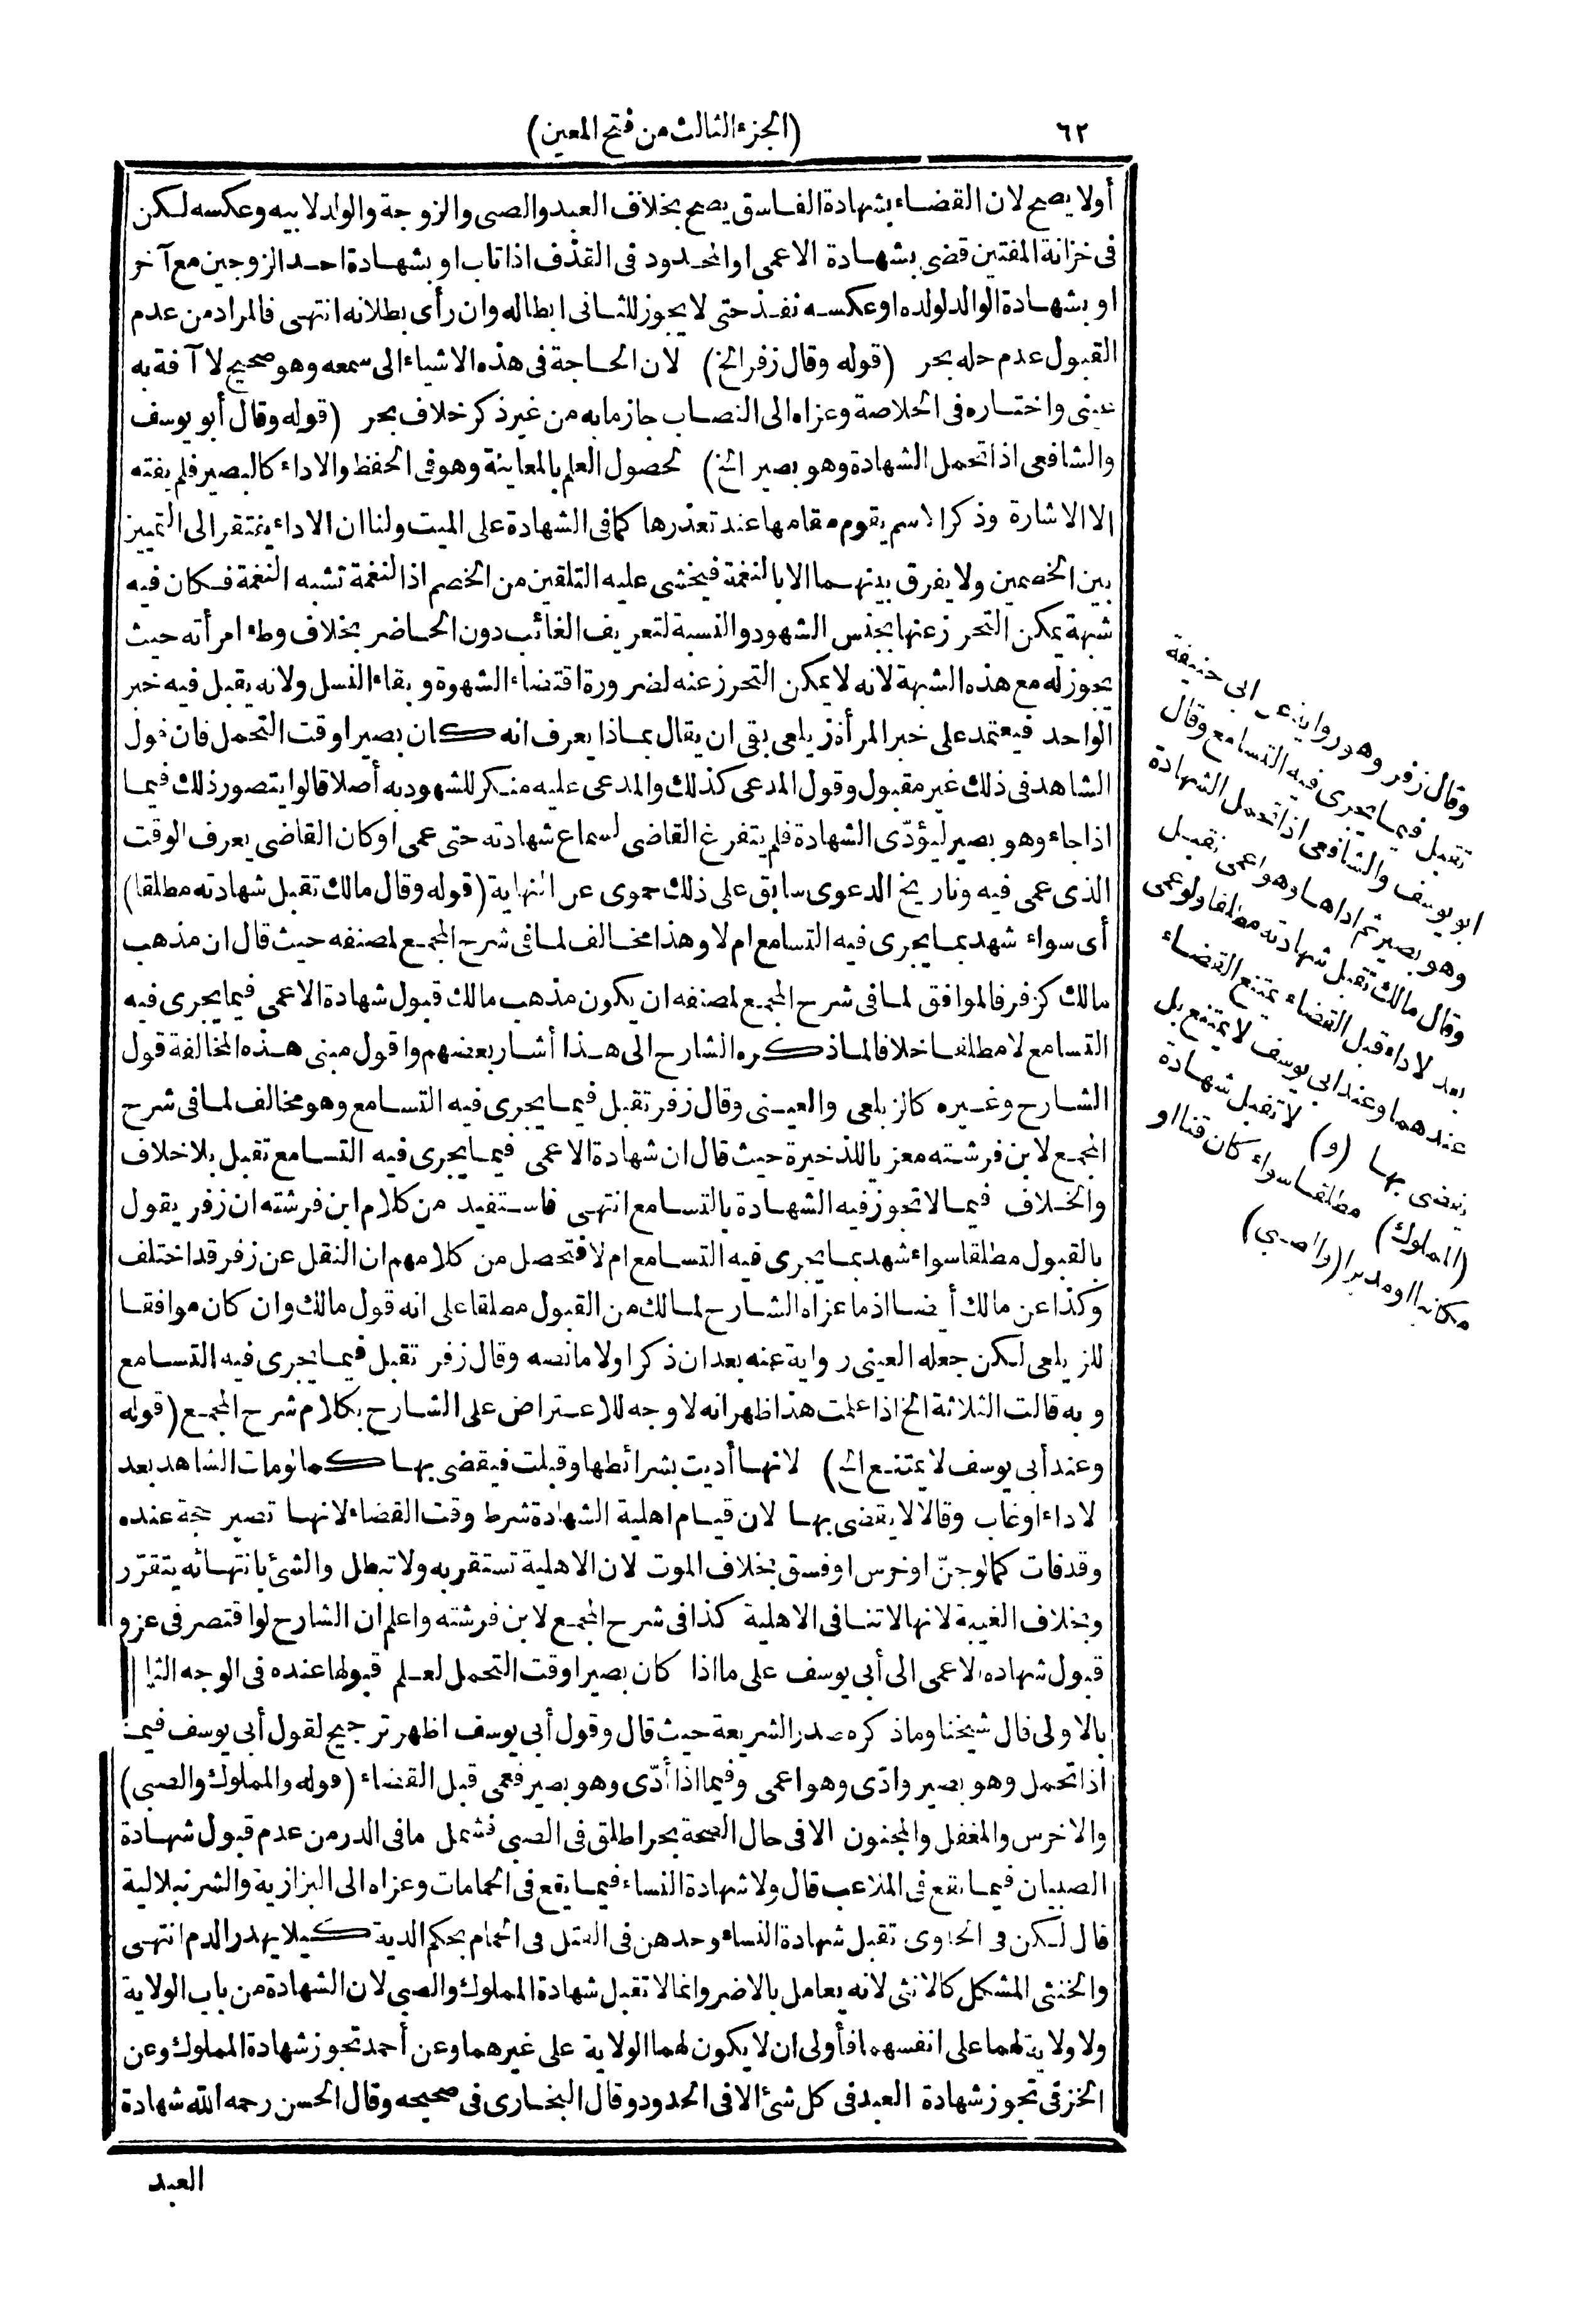 ٦٢
(الجزء الثالث من فتح المعين)
أولا يصح لان القضاء بشهادة الفاسق يصح بخلاف العبد والصبى والزوجة والولد لابيه وعكسه لكن
فى خزانة المفتين قضى بشهادة الاعمى اوالمحدود فى القذف اذا تاب او بشهادة احد الزوجين مع آخر
او بشهادة الوالد لولده اوعكسه نفذ حتى لا يجوز للثانى ابطاله وان رأى بطلانه انتهى فالمراد من عدم
القبول عدم حله بحر (قوله وقال زفر الخ) لان الحاجة فى هذه الاشياء الى سمعه وهو صحيح لا آفة به
عينى واختاره فى الخلاصة وعزاه الى النصاب جازما به من غير ذكر خلاف بحر (قوله وقال أبو يوسف
والشافعى اذا تحمل الشهادة وهو بصير الخ) لحصول العلم بالمعاينة وهو فى الحفظ والاداء كالبصير فلم يفته
الا الاشارة وذكر الاسم يقوم مقامها عند تعذرها كمافى الشهادة على الميت ولنا ان الاداء يفتقر الى التمييز
بين الخصمين ولا يفرق بينهما الا بالنغمة فيخشى عليه التلقين من الخصم اذ النغمة تشبه النغمة فكان فيه
شبهة يمكن التحرز عنها بجنس الشهود والنسبة لتعريف الغائب دون الحاضر بخلاف وطء امرأته حيث
يجوز له مع هذه الشبهة لانه لا يمكن التحرز عنه لضرورة اقتضاء الشهوة وبقاء النسل ولانه يقبل فيه خبر
الواحد فيعتمد على خبر المرأة زيلعى بقى ان يقال بماذا يعرف انه كان بصيرا وقت التحمل فان قول
الشاهد فى ذلك غير مقبول وقول المدعى كذلك والمدعى عليه منكر للشهود به أصلا قالوا يتصور ذلك فيما
اذا جاء وهو بصير ليؤدّى الشهادة فلم يتفرغ القاضى لسماع شهادته حتى عمى اوكان القاضى يعرف الوقت
الذى عمى فيه وتاريخ الدعوى سابق على ذلك حموى عن النهاية (قوله وقال مالك تقبل شهادته مطلقا)
أى سواء شهد بما يجرى فيه التسامع ام لا وهذا مخالف لمافى شرح المجمع لمصنفه حيث قال ان مذهب
مالك كزفر فالموافق لمافى شرح المجمع لمصنفه ان يكون مذهب مالك قبول شهادة الاعمى فيما يجرى فيه
التسامع لا مطلقا خلافا لماذكره الشارح الى هذا أشار بعضهم واقول مبنى هذه المخالفة قول
الشارح وغيره كالزيلعى والعينى وقال زفر تقبل فيما يجرى فيه التسامع وهو مخالف لمافى شرح
المجمع لابن فرشته معزيا للذخيرة حيث قال ان شهادة الاعمى فيما يجرى فيه التسامع تقبل بلا خلاف
والخلاف فيما لا تجوز فيه الشهادة بالتسامع انتهى فاستفيد من كلام ابن فرشته ان زفر يقول
بالقبول مطلقا سواء شهد بما يجرى فيه التسامع ام لا فتحصل من كلامهم ان النقل عن زفر قد اختلف
وكذا عن مالك أيضا اذ ماعزاه الشارح لمالك من القبول مطلقا على انه قول مالك وان كان موافقا
للزيلعى لكن جعله العينى رواية عنه بعد ان ذكر اولا مانصه وقال زفر تقبل فيما يجرى فيه التسامع
وبه قالت الثلاثة الخ اذا علمت هذا ظهر انه لا وجه للاعتراض على الشارح بكلام شرح المجمع (قوله
وعند أبى يوسف لا يمتنع الخ) لانها أديت بشرائطها وقبلت فيقضى بها كمالومات الشاهد بعد
لاداء اوغاب وقالا لا يقضى بها لان قيام اهلية الشهادة شرط وقت القضاء لانها تصير حجة عنده
وقد فات كمالوجنّ اوخرس اوفسق بخلاف الموت لان الاهلية تستقر به ولا تبطل والشئ بانتهائه يتقرّر
وبخلاف الغيبة لانها لا تنافى الاهلية كذا فى شرح المجمع لابن فرشته واعلم ان الشارح لو اقتصر فى عزو
قبول شهادة الاعمى الى أبى يوسف على ما اذا كان بصيرا وقت التحمل لعلم قبولها عنده فى الوجه الثا
بالاولى قال شيخنا وماذكره صدر الشريعة حيث قال وقول أبى يوسف اظهر ترجيح لقول أبى يوسف فيما
اذا تحمل وهو بصير وادّى وهو اعمى وفيما اذا أدّى وهو بصير فعمى قبل القضاء (قوله والمملوك والصبى)
والاخرس والمغفل والمجنون الا فى حال الصحة بحر اطلق فى الصبى فشمل مافى الدر من عدم قبول شهادة
الصبيان فيما يقع فى الملاعب قال ولا شهادة النساء فيما يقع فى الحمامات وعزاه الى البزازية والشرنبلالية
قال لكن فى الحاوى تقبل شهادة النساء وحدهن فى القتل فى الحمام بحكم الدية كيلا يهدر الدم انتهى
والخنثى المشكل كالانثى لانه يعامل بالاضر وانما لا تقبل شهادة المملوك والصبى لان الشهادة من باب الولاية
ولا ولاية لهما على انفسهما فأولى ان لا يكون لهما الولاية على غيرهما وعن أحمد تجوز شهادة المملوك وعن
الخزقى تجوز شهادة العبد فى كل شئ الا فى الحدود وقال البخارى فى صحيحه وقال الحسن رحمه الله شهادة
العبد
وقال زفر وهو رواية عن ابى حنيفة
تقبل فيما يجرى فيه التسامع وقال
ابو يوسف والشافعى اذا تحمل الشهادة
وهو بصير ثم اداها وهو اعمى تقبل
وقال مالك تقبل شهادته مطلقا ولو عمى
بعد لاداء قبل القضاء يمتنع القضاء
عندهما وعند ابى يوسف لا يمتنع بل
يقضى بها (و) لا تقبل شهادة
(المملوك) مطلقا سواء كان قنا او
مكاتبا او مدبرا (والصبى)